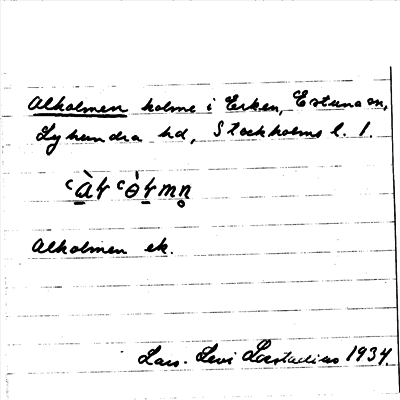 Alholmen holme i Erken, Estuna sn,
Lyhundra hd, Stockholms l. 1.
Alholmen ek.
Lars-Levi Læstadius 1934.